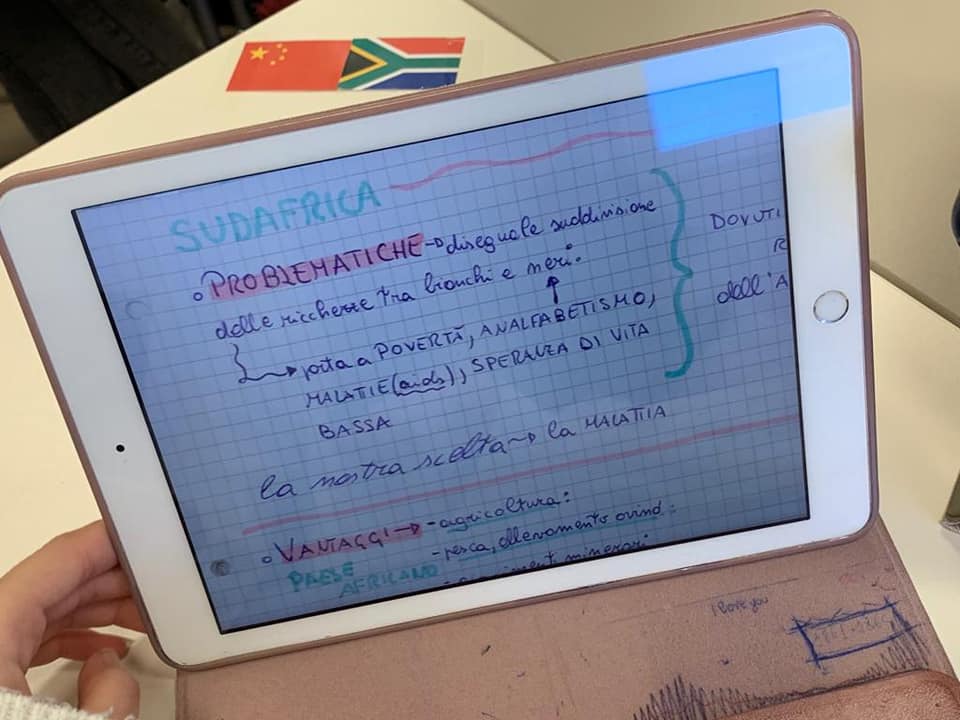 SUDAFRICA
PROBLEMATICHE → diseguale suddivisione
delle ricchezze tra bianchi e neri.
porta a POVERTÀ, ANALFABETISMO,
MALATIE (aids), SPERANZA DI VITA
BASSA
DOVUTI
R
dell'A
la nostra scelta → la MALATTIA
VANTAGGI → - agricoltura:
PAESE
AFRICANO
- pesca, allevamento ovino:
minerari
I love you